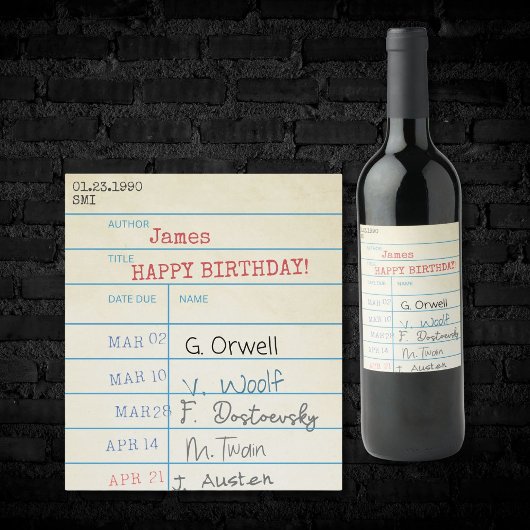 01.23.1990
SMI
AUTHOR
James
TITLE
HAPPY BIRTHDAY!
DATE DUE NAME
MAR 02 G. Orwell
MAR 10 V. Woolf
MAR 28 F. Dostoevsky
APR 14 M. Twain
APR 21 J. Austen
AUTHOR
James
TITLE
HAPPY BIRTHDAY!
DATE DUE NAME
MAR 02 G. Orwell
MAR 10 V. Woolf
MAR 28 F. Dostoevsky
APR 14 M. Twain
J. Austen